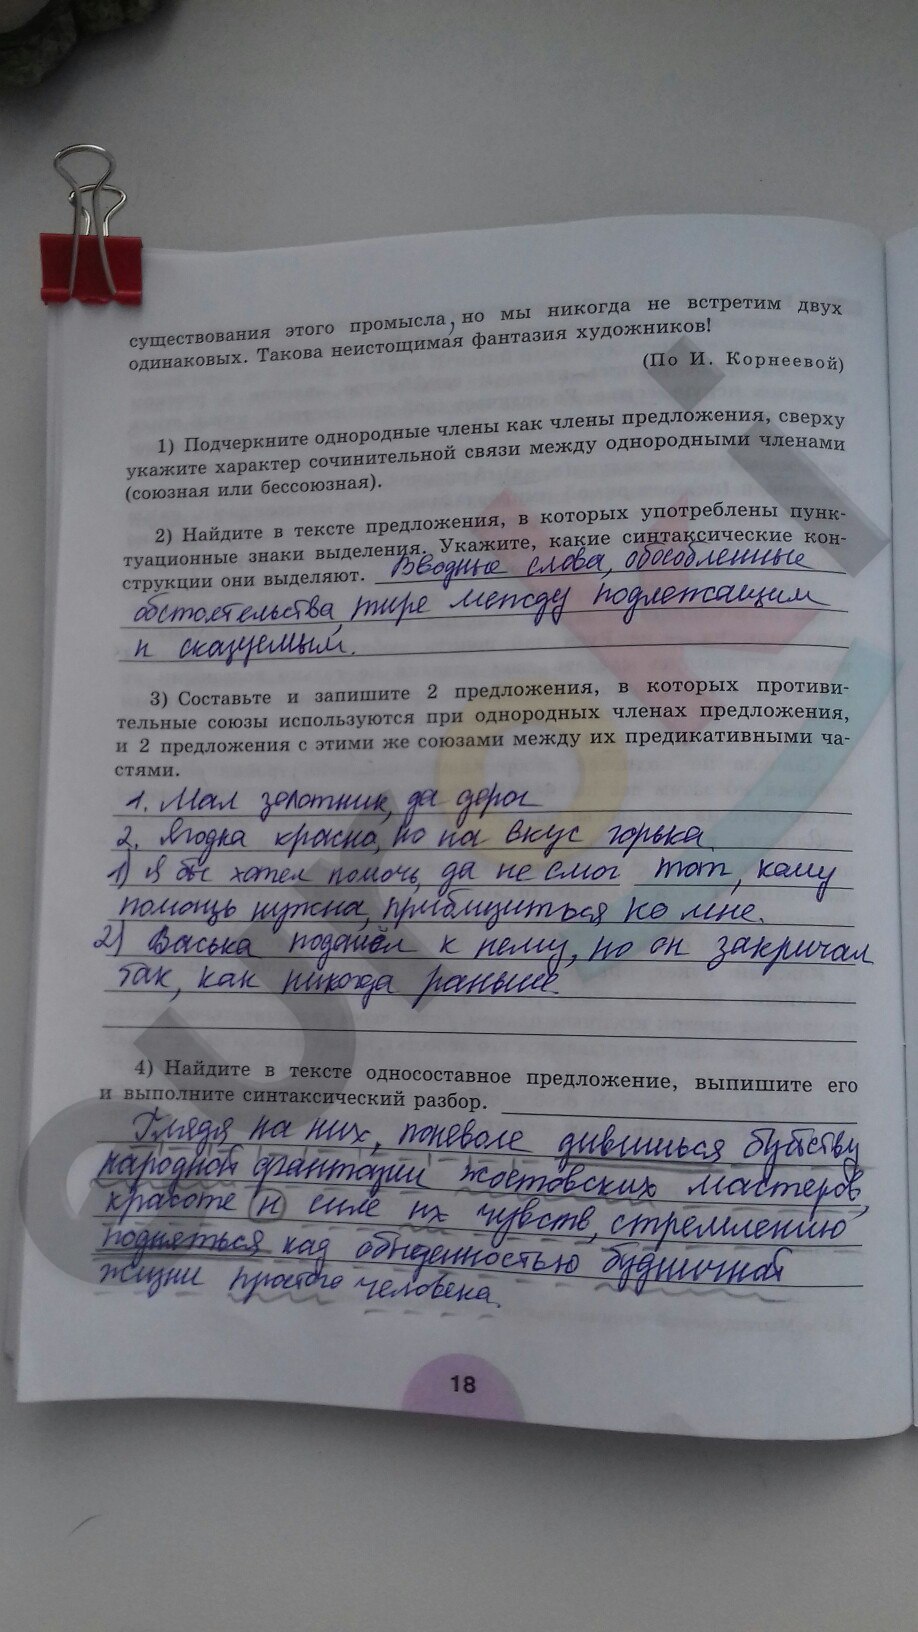 существования этого промысла, но мы никогда не встретим двух
одинаковых. Такова неистощимая фантазия художников!
(По И. Корнеевой)
1) Подчеркните однородные члены как члены предложения, сверху
укажите характер сочинительной связи между однородными членами
(союзная или бессоюзная).
2) Найдите в тексте предложения, в которых употреблены пунк-
туационные знаки выделения. Укажите, какие синтаксические кон-
струкции они выделяют. Вводные слова, обособленные
обстоятельства, тире между подлежащим
и сказуемым.
3) Составьте и запишите 2 предложения, в которых противи-
тельные союзы используются при однородных членах предложения,
и 2 предложения с этими же союзами между их предикативными ча-
стями.
1. Мал золотник, да дорог
2. Ягодка красна, но на вкус горька.
1) Я бы хотел помочь, да не смог тот, кому
помощь нужна, приблизиться ко мне.
2) Васька подошёл к нему, но он закричал
так, как никогда раньше.
4) Найдите в тексте односоставное предложение, выпишите его
и выполните синтаксический разбор.
Глядя на них, поневоле дивишься буйству
народной фантазии жостовских мастеров,
красоте и силе их чувств, стремлению
подняться над обыденностью будничной
жизни простого человека.
18